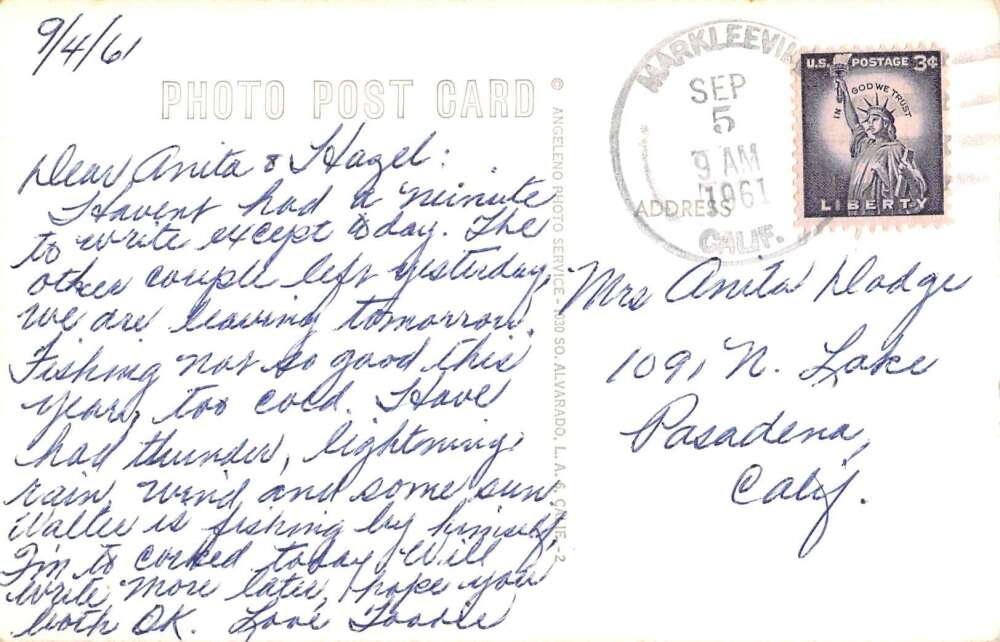 9/4/61
PHOTO POST CARD
Dear Anita & Hazel:
Havent had a minute
to write except today. The
other couple left yesterday,
we are leaving tomorrow.
Fishing not so good this
year, too cold. Have
had thunder, lightning,
rain, wind and some sun.
Walter is fishing by himself,
I'm to today. Will
write more later, hope you
both OK. Love
© ANGELENO PHOTO SERVICE - 1030 SO. ALVARADO, L. A. 6, CALIF. - 2
MARKLEEVI
SEP
5
9 AM
1961
CALIF.
U.S. POSTAGE 3¢
IN GOD WE TRUST
LIBERTY
ADDRESS
Mrs Anita Dodge
1091 N. Lake
Pasadena,
Calif.